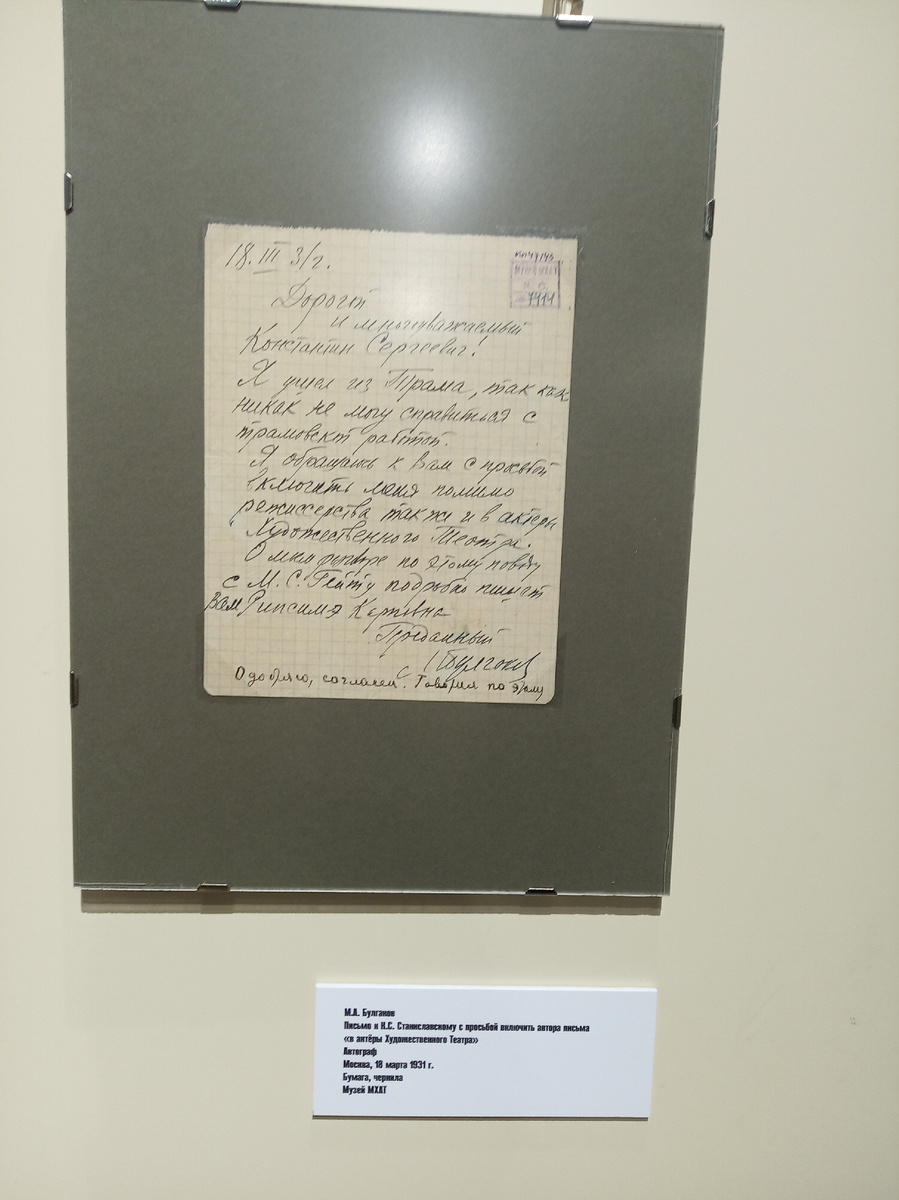 18. III 31 г.
МУЗЕЙ МХАТ
7411
Дорогой
и многоуважаемый
Константин Сергеевич!
Я ушел из Трама, так как
никак не могу справиться с
трамовской работой.
Я обращаюсь к Вам с просьбой
включить меня помимо
режиссерства также и в актеры
Художественного Театра.
О моем разговоре по этому поводу
с М. С. Гейтц подробно пишет
Вам Рипсимэ Карповна
Преданный
М. Булгаков
Одобряю, согласен. Говорил по этому
М.А. Булгаков
Письмо к К.С. Станиславскому с просьбой включить автора письма
«в актёры Художественного Театра»
Автограф
Москва, 18 марта 1931 г.
Бумага, чернила
Музей МХАТ